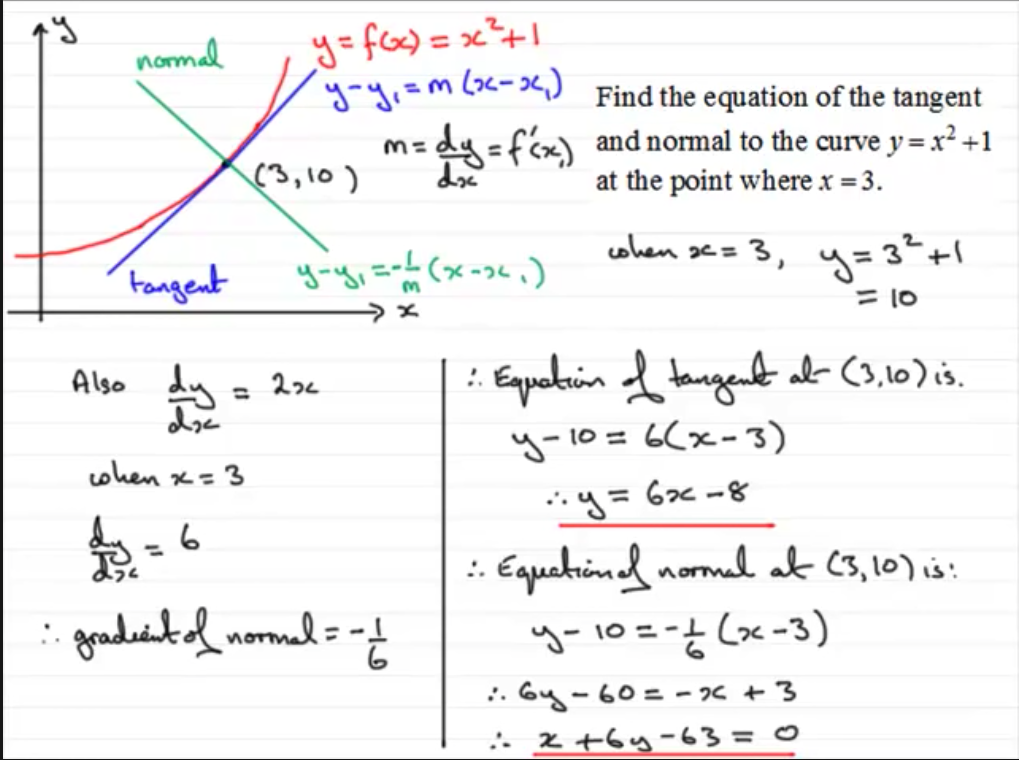 y
normal
y = f(x) = x² + 1
y - y₁ = m (x - x₁)
m = dy/dx = f'(x₁)
(3, 10)
tangent
y - y₁ = -1/m (x - x₁)
x
Find the equation of the tangent
and normal to the curve y = x² + 1
at the point where x = 3.
when x = 3, y = 3² + 1
= 10
Also dy/dx = 2x
when x = 3
dy/dx = 6
∴ gradient of normal = -1/6
∴ Equation of tangent at (3, 10) is.
y - 10 = 6(x - 3)
∴ y = 6x - 8
∴ Equation of normal at (3, 10) is:
y - 10 = -1/6 (x - 3)
∴ 6y - 60 = -x + 3
∴ x + 6y - 63 = 0